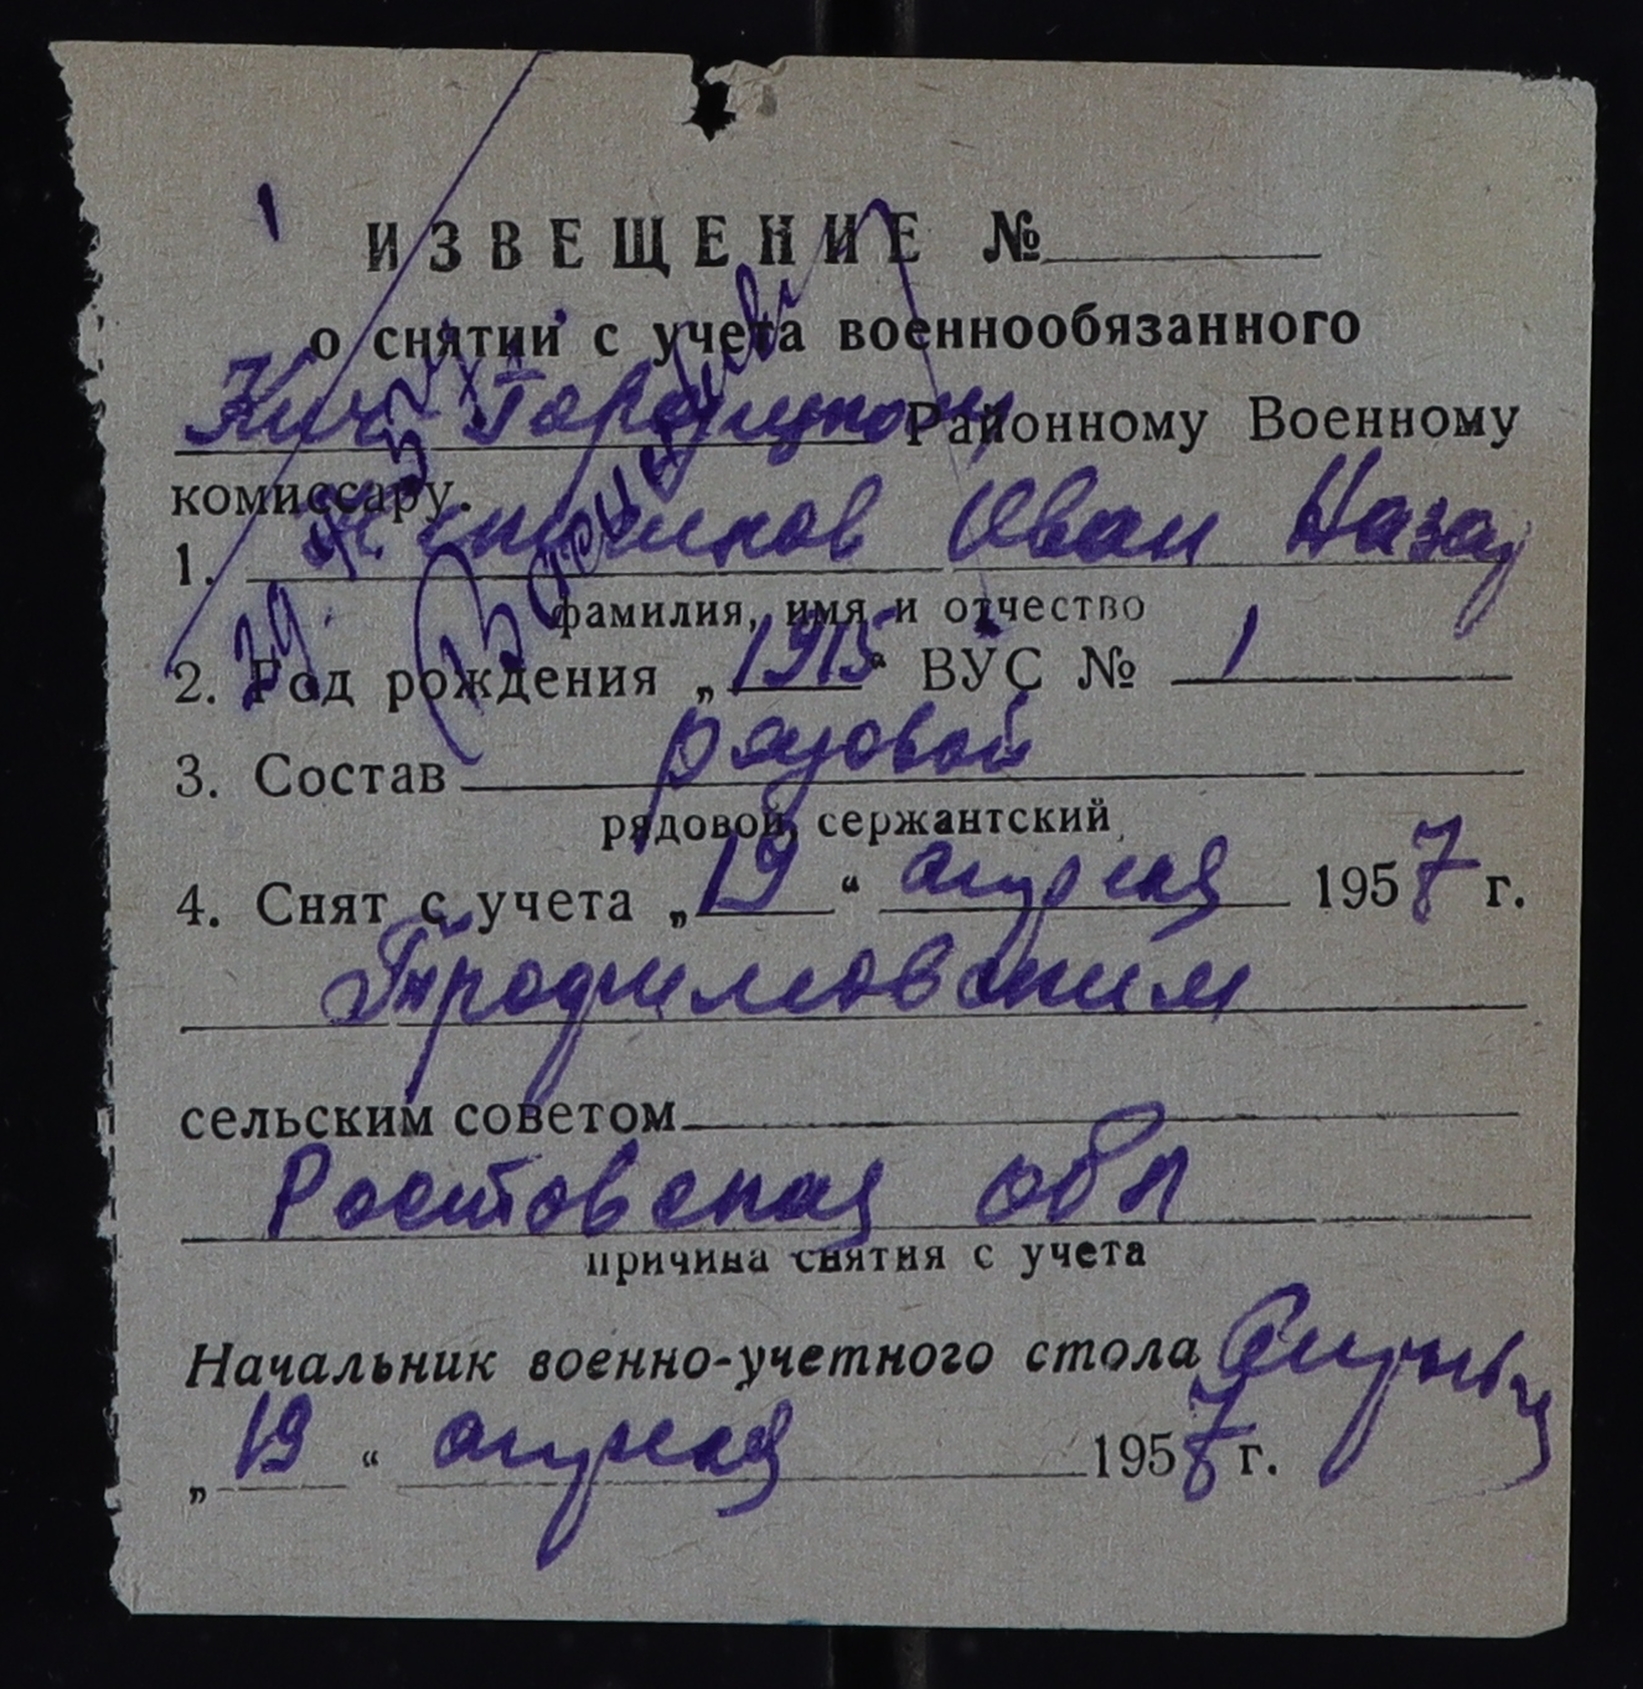 ИЗВЕЩЕНИЕ №
о снятии с учета военнообязанного
Кич-Городецкому Районному Военному
комиссару.
1. Иван Назар
фамилия, имя и отчество
2. Год рождения „1915“ ВУС № 1
3. Состав рядовой
рядовой, сержантский
4. Снят с учета „19“ апреля 1957 г.
Трофимовским
сельским советом
Ростовская обл
причина снятия с учета
Начальник военно-учетного стола
„19“ апреля 1957 г.